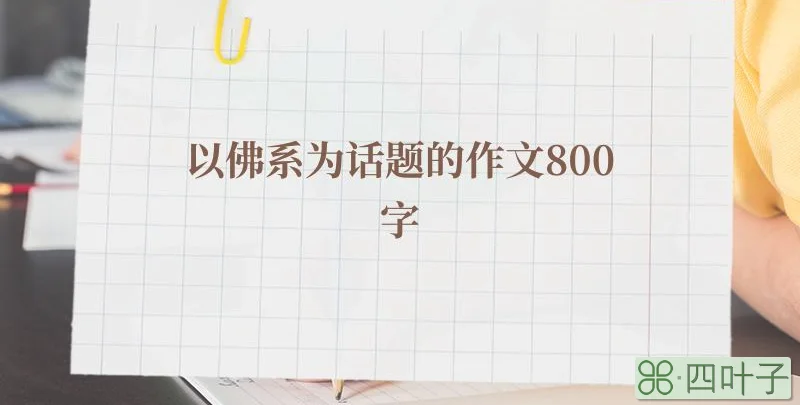 以佛系为话题的作文800
字
四叶子